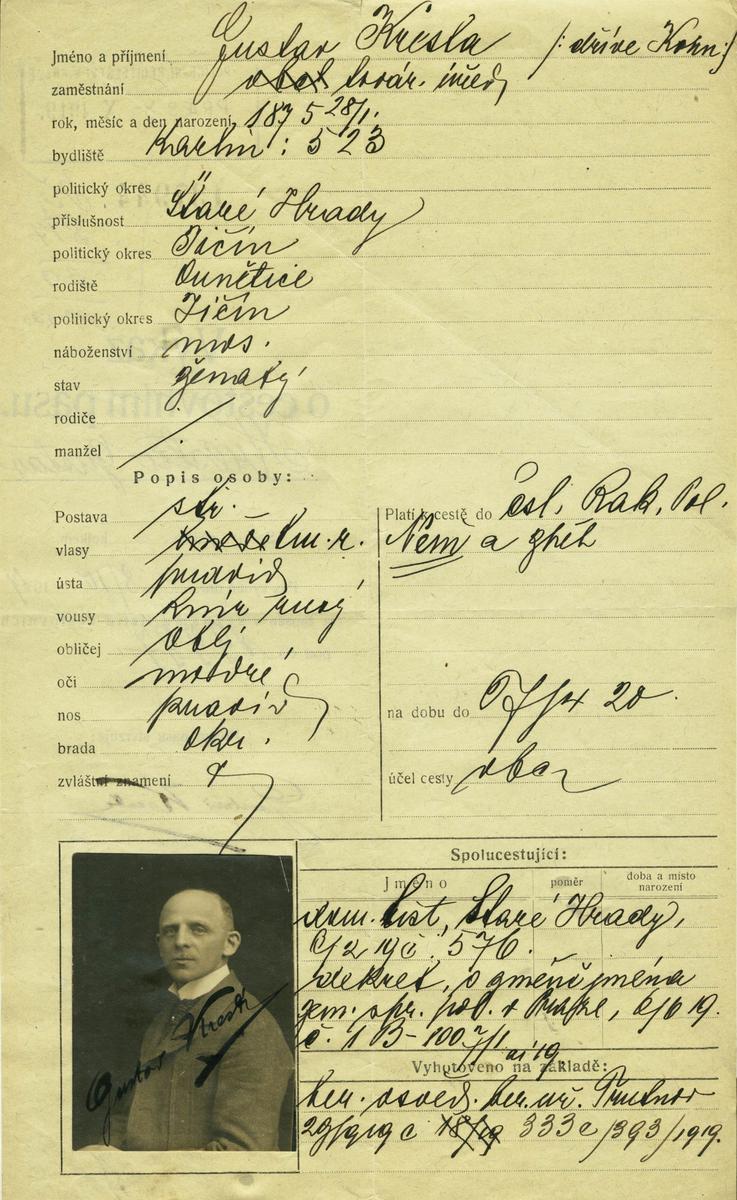 Jméno a příjmení Gustav Kresta /: dříve Kohn:/
zaměstnání továr. úřed.
rok, měsíc a den narození 1875 28/1.
bydliště Karlín: 523
politický okres "
příslušnost Staré Hrady
politický okres Jičín
rodiště Bunětice
politický okres Jičín
náboženství mos.
stav ženatý
rodiče
manžel
Popis osoby:
Postava stř.
vlasy tm. r.
ústa pravid
vousy knír rusý
obličej oblý
oči modré
nos pravid
brada okr.
zvláštní znamení
Platí k cestě do čsl. Rak. Pol.
Něm a zpět
na dobu do 20.
účel cesty obch
Spolucestující:
Jméno poměr doba a místo narození
dom. list, Staré Hrady,
č. 576.
dekret, o změně jména
zem. spr. pol. v Praze, 6/6 19.
č. 1 B-100 7/1 ai 19
Vyhotoveno na základě:
ber. osvěd. ber. úř. Trutnov
29/9 19 č 333c/393/1919.
Gustav Kresta